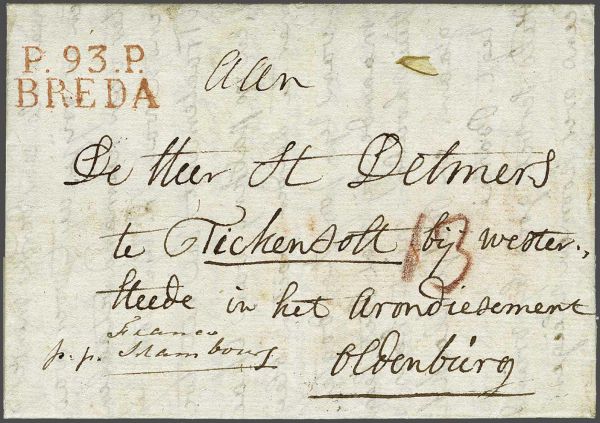 P. 93. P.
BREDA
aan
De Heer St Detmers
te Tickensolt bij wester-,
steede in het Arondiesement
Oldenbürg
Franco
p. p.
13